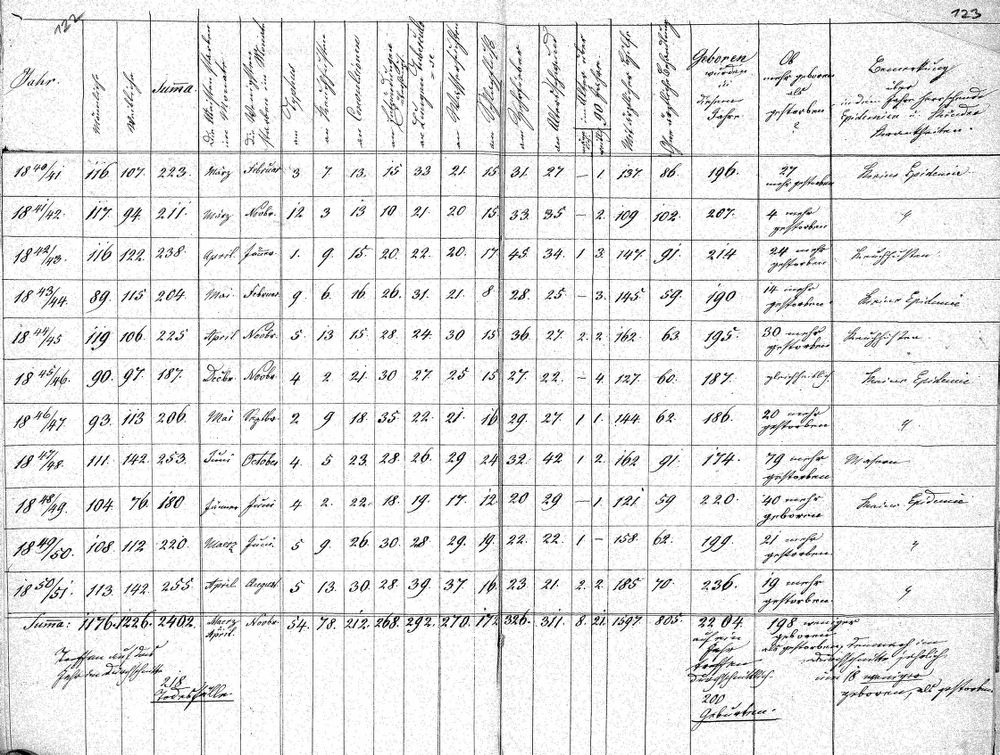 122
123
Jahr.
Männer
Weibliche
Summa.
Die Meisten starben im Monate
die Wenigsten starben im Monate
an Typhus
an Keuchhusten
an Convulsionen
an Wassersuchten
an Schlagfluß
an Zehrfieber
an Altersschwäche
im Alter über 90 Jahre.
Mit ärztlicher Hilfe.
Ohne ärztliche Behandlung
Geboren wurden in diesem Jahre
Ob mehr geboren als gestorben ?
Bemerkung über in dem Jahre herrschende Epidemien u. Kinder Krankheiten.
18 40/41 116 107. 223. März Februar 3 7. 13. 15 33 21. 15 31. 27 – 1. 137 86. 196. 27 mehr gestorben Keine Epidemie
18 41/42. 117. 94. 211. März Novbr. 12 3 13 10 21. 20 15. 33. 35 – 2. 109 102. 207. 4 mehr gestorben "
18 42/43. 116 122. 238. April Jänner 1. 9. 15. 20. 22. 20. 17 45. 34. 1 3. 147. 91. 214 24 mehr gestorben Keuchhusten.
18 43/44. 89. 115 204. Mai Februar 9 6. 16. 26. 31. 21. 8 28. 25 – 3. 145 59. 190 14 mehr gestorben. Keine Epidemie
18 44/45 119 106. 225 April Novbr. 5. 13. 15. 28. 24. 30 15 36. 27. 2. 2. 162. 63 195. 30 mehr gestorben Keuchhusten.
18 45/46. 90. 97. 187. Decbr. Novbr. 4 2. 21. 30 27. 25 15 27. 22. – 4. 127. 60. 187. gleichheitlich Keine Epidemie
18 46/47 93. 113 206. Mai Septbr. 2 9 18. 35 22. 21. 16 29. 27. 1 1. 144 62. 186. 20 mehr gestorben "
18 47/48. 111. 142. 253. Juni October 4. 5 23. 28. 26. 29 24 32. 42 1 2. 162 91. 174. 79 mehr gestorben Masern.
18 48/49. 104. 76. 180 Jänner Juni 4 2. 22. 18. 19. 17. 12 20 29 – 1. 121. 59 220. 40 mehr geboren Keine Epidemie
18 49/50. 108. 112 220. Maerz Juni. 5 9. 26. 30. 28 29. 19. 22. 22. 1 – 158. 62. 199. 21 mehr gestorben "
18 50/51. 113. 142. 255. April August 5 13. 30 28. 39. 37 16. 23. 21. 2. 2. 185 70. 236. 19 mehr gestorben. "
Summa: 1176. 1226. 2402. Maerz April. Novbr. 54. 78. 212. 268. 292. 270. 172 326. 311. 8. 21. 1597 805. 2204 198 weniger
geboren
als gestorben, demnach im
durchschnitte jährlich
um 18 weniger
geboren, als gestorben
auf ein
Jahr
treffen
durchschnittlich
200
Geburten.
Treffen auf das
Jahr im Durchschnitte
218
Todesfälle.